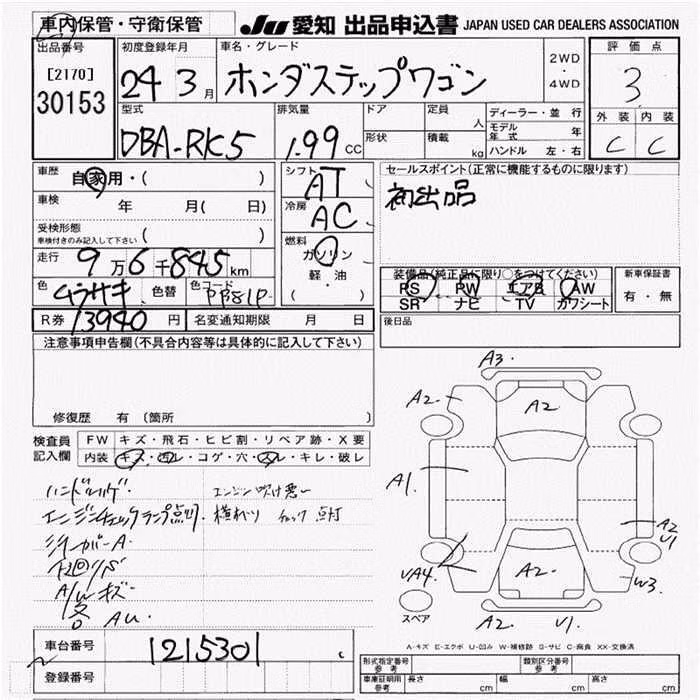 車内保管・守衛保管
JU 愛知 出品申込書 JAPAN USED CAR DEALERS ASSOCIATION
出品番号
[2170]
30153
初度登録年月
24 3月
車名・グレード
ホンダステップワゴン
2WD
・
4WD
評価点
3
外装 内装
C C
型式
DBA-RK5
排気量
1.99 CC
ドア
形状
定員 人
積載 kg
ディーラー・並行
モデル年式 年
ハンドル 左・右
車歴 自家用・( )
車検 年 月( 日)
受検形態
車検付きのみ記入して下さい ( )
走行 9万6千845km
色 ムラサキ 色替 色コード PP81P
シフト AT
冷房 AC
燃料
ガソリン
軽・油
( )
セールスポイント(正常に機能するものに限ります)
初出品
装備品(純正品に限り○をつけてください)
PS PW エアB AW
SR ナビ TV カワシート
新車保証書
有・無
R券 13940円 名変通知期限 月 日
後日品
注意事項申告欄(不具合内容等は具体的に記入して下さい)
修復歴 有 〔箇所
検査員
記入欄
FW キズ・飛石・ヒビ割・リペア跡・X要
内装 キズ・汚レ・コゲ・穴・スレ・キレ・破レ
ハンドルハゲ・ エンジン吹け悪い
エンジンチェックランプ点灯・横滑り チェック 点灯
シガーA・
下廻りS
A/Wキズ・
各AU・
A3・
A2・
A2
A1・
A2
V1
VA4・
A2・
W3
A2 V1・
スペア
A-キズ E-エクボ U-凹み W-補修跡 S-サビ C-腐食 XX-交換済
車台番号 1215301
登録番号
型式指定番号
参考
類別区分番号
参考
車庫証明用
参考
長さ cm 幅 cm 高さ cm